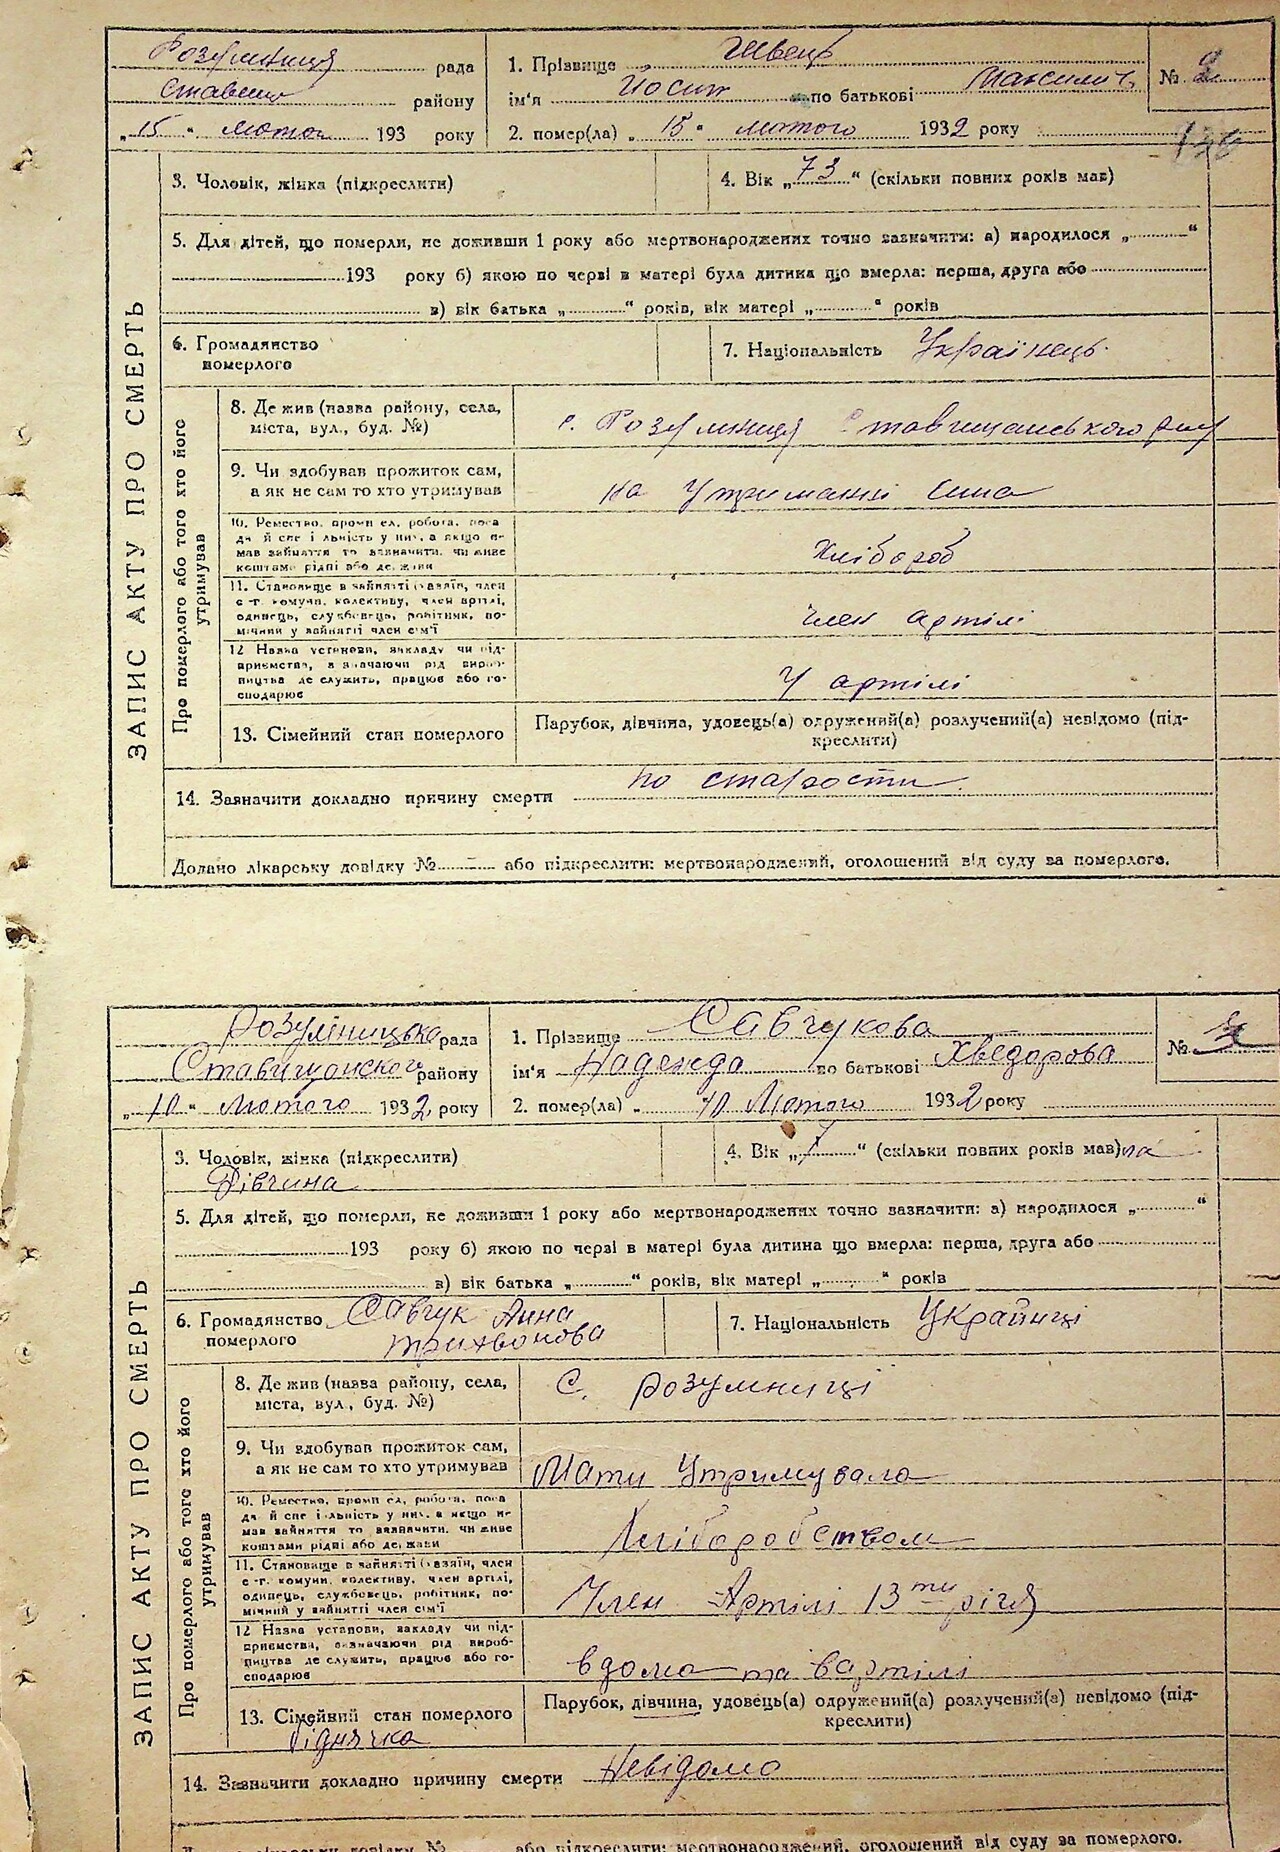 Розумниця рада
Ставищ району
„15" лютого 193 року
1. Прізвище Швець
ім'я Йосип по батькові Максимів
2. помер(ла) „15" лютого 1932 року
№ 2
ЗАПИС АКТУ ПРО СМЕРТЬ
3. Чоловік, жінка (підкреслити)
4. Вік „73" (скільки повних років мав)
5. Для дітей, що померли, не доживши 1 року або мертвонароджених точно зазначити: а) народилося „ "
193 року б) якою по черзі в матері була дитина що вмерла: перша, друга або
в) вік батька „ " років, вік матері „ " років
6. Громадянство
померлого
7. Національність Українець.
Про померлого або того хто його
утримував
8. Де жив (назва району, села,
міста, вул., буд. №)
с. Розумниця Ставищанського р-ну
9. Чи здобував прожиток сам,
а як не сам то хто утримував
на утриманні сина
10. Ремество, промисел, робота, поса
да й спеціяльність у них, а якщо не
мав зайняття то зазначити, чи живе
коштами рідні або держави
Хлібороб
11. Становище в зайнятті (хазяїн, член
с.-г. комуни, колективу, член артілі,
одинець, службовець, робітник, по-
мічний у зайнятті член сім'ї
член артілі
12 Назва установи, закладу чи під-
приємства, зазначаючи рід вироб-
ництва де служить, працює або го-
сподарює
У артілі
13. Сімейний стан померлого
Парубок, дівчина, удовець(а) одружений(а) розлучений(а) невідомо (під-
креслити)
14. Зазначити докладно причину смерти по старости.
Додано лікарську довідку № або підкреслити: мертвонароджений, оголошений від суду за померлого.
Розумницька рада
Ставищанского району
„10" Лютого 1932 року
1. Прізвище Савчукова
ім'я Надежда по батькові Хведорова
2. помер(ла) „ 10 Лютого 1932 року
№ 3
ЗАПИС АКТУ ПРО СМЕРТЬ
3. Чоловік, жінка (підкреслити)
Дівчина
4. Вік „7" (скільки повних років мав)ла
5. Для дітей, що померли, не доживши 1 року або мертвонароджених точно зазначити: а) народилося „ "
193 року б) якою по черзі в матері була дитина що вмерла: перша, друга або
в) вік батька „ " років, вік матері „ " років
6. Громадянство Савчук Анна
померлого Трихвонова
7. Національність Украйнці
Про померлого або того хто його
утримував
8. Де жив (назва району, села,
міста, вул., буд. №)
С. Розумниці
9. Чи здобував прожиток сам,
а як не сам то хто утримував
Мати Утримувала
10. Ремество, промисел, робота, поса
да й спеціяльність у них, а якщо не
мав зайняття то зазначити, чи живе
коштами рідні або держави
Хліборобством
11. Становище в зайнятті (хазяїн, член
с.-г. комуни, колективу, член артілі,
одинець, службовець, робітник, по-
мічний у зайнятті член сім'ї
Член Артілі 13ти річя
12 Назва установи, закладу чи під-
приємства, зазначаючи рід вироб-
ництва де служить, працює або го-
сподарює
вдома та вартілі
13. Сімейний стан померлого
біднячка
Парубок, дівчина, удовець(а) одружений(а) розлучений(а) невідомо (під-
креслити)
14. Зазначити докладно причину смерти Невідомо
або підкреслити: мертвонароджений, оголошений від суду за померлого.